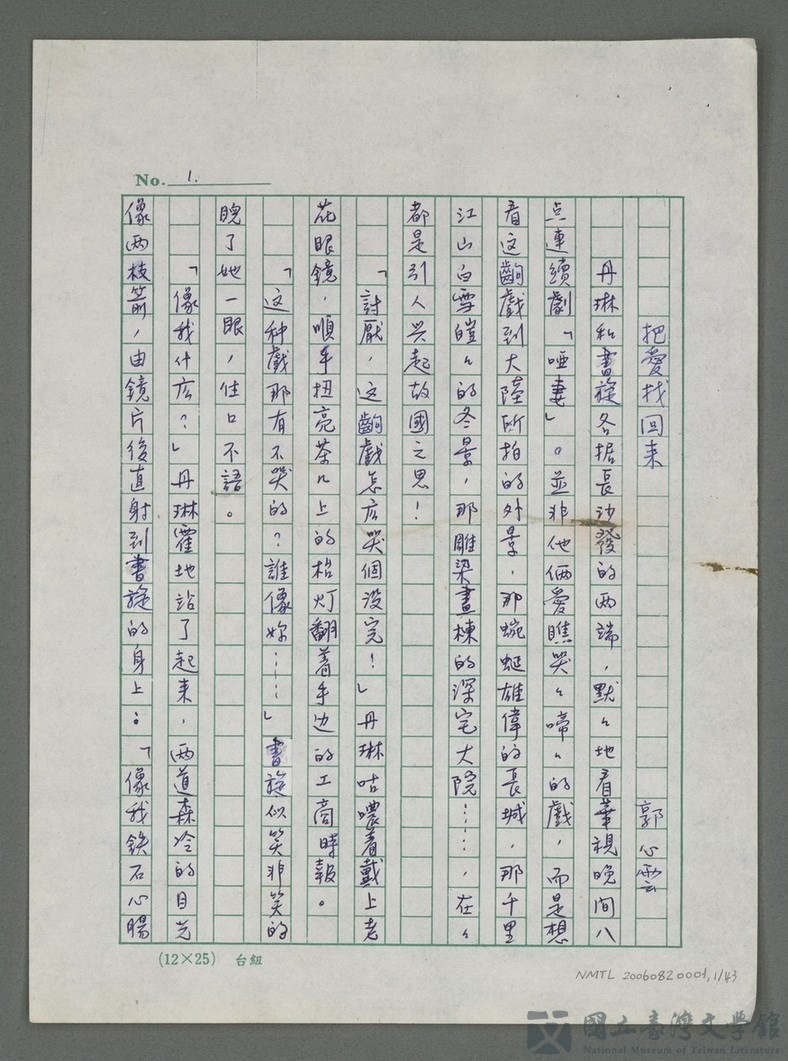 No. 1.
把愛找回来 郭心雲
丹琳和書旋各据長沙發的两端，默々地看華視晚间八
点連續劇「啞妻」。並非他倆愛瞧哭々啼々的戲，而是想
看这齣戲到大陸所拍的外景，那蜿蜒雄偉的長城，那千里
江山白雪皚々的冬景，那雕梁畫棟的深宅大院……，在々
都是引人兴起故國之思！
「討厭，这齣戲怎広哭個沒完！」丹琳咕噥着戴上老
花眼鏡，順手扭亮茶几上的枱灯翻着手边的工商時報。
「这种戲那有不哭的？誰像妳……」書旋似笑非笑的
睨了她一眼，住口不語。
「像我什広？」丹琳霍地站了起来，两道森冷的目光
像两枝箭，由鏡片後直射到書旋的身上：「像我鉄石心腸
(12×25) 台紐
NMTL 20060820001, 1/43
國立臺灣文學館
National Museum of Taiwan Literature